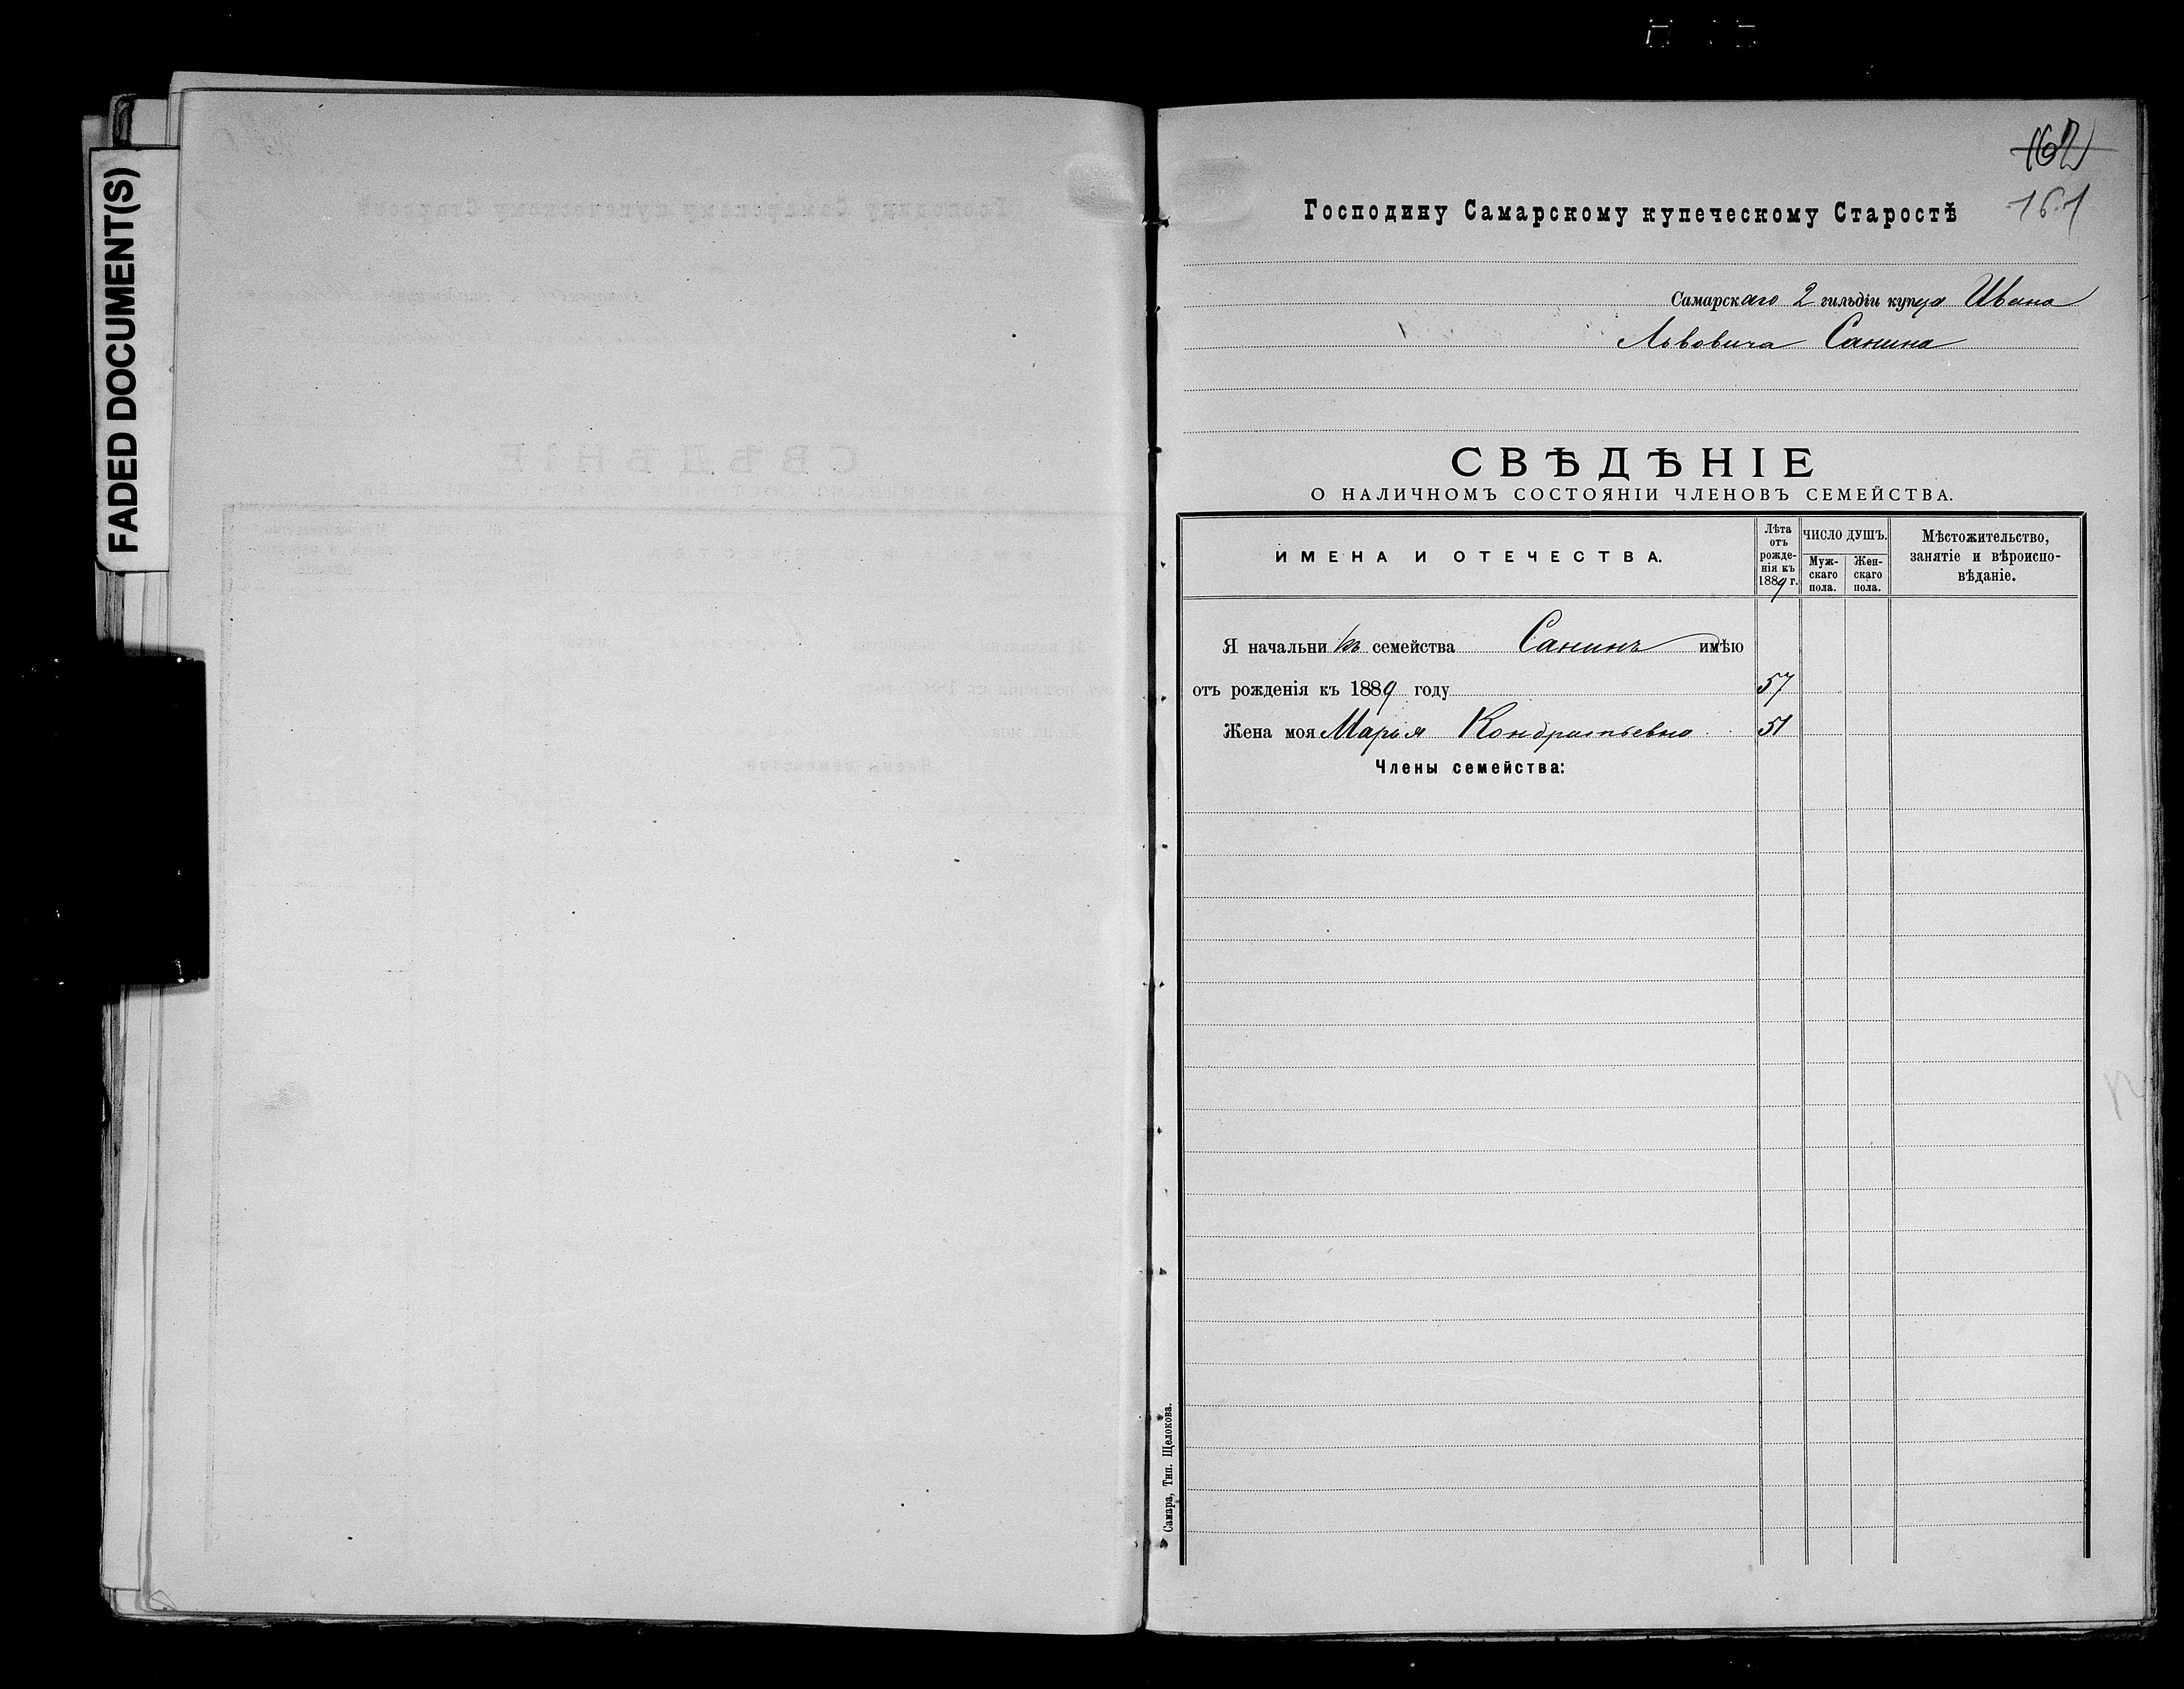 FADED DOCUMENT(S)
162
161
Господину Самарскому купеческому Старостѣ
Самарскаго 2 гильдіи купца Ивана
Львовича Санина
СВѢДѢНІЕ
О НАЛИЧНОМЪ СОСТОЯНІИ ЧЛЕНОВЪ СЕМЕЙСТВА.
ИМЕНА И ОТЕЧЕСТВА.
Лѣта
отъ
рожде-
нія къ
1889 г.
ЧИСЛО ДУШЪ.
Муж-
скаго
пола.
Жен-
скаго
пола.
Мѣстожительство,
занятіе и вѣроиспо-
вѣданіе.
Я начальникъ семейства Санинъ имѣю
отъ рожденія къ 1889 году 57
Жена моя Марья Кондратьевна 51
Члены семейства:
Самара, Тип. Щелокова.